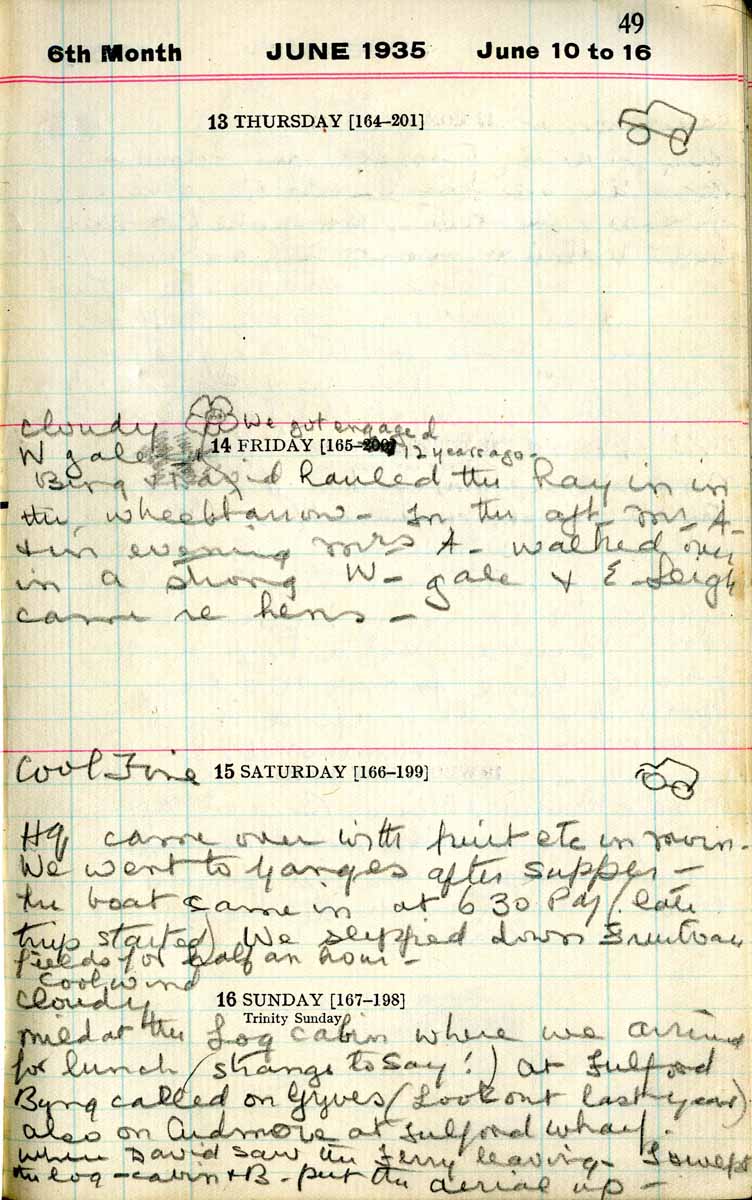 49
6th Month JUNE 1935 June 10 to 16
13 THURSDAY [164–201]
cloudy We got engaged
W gale 14 FRIDAY [165–200] 12 years ago –
Byng & David hauled the hay in in
the wheelbarrow – In the aft Mr A –
& in evening Mrs A – walked over
in a strong W – gale & E Leigh
came re hens –
Cool Fine 15 SATURDAY [166–199]
came over with fruit etc in morn –
We went to Ganges after supper –
the boat came in at 6 30 PM (late
trip started) We slipped down
fields for half an hour –
cool wind
cloudy 16 SUNDAY [167–198]
Trinity Sunday
mild at the Log cabin where we arrived
for lunch (strange to say!) at Fulford
Byng called on Gyves (Lookout last year)
also on Ardmore at Fulford wharf.
when David saw the Ferry leaving – I swept
the log – cabin & B – put the aerial up –